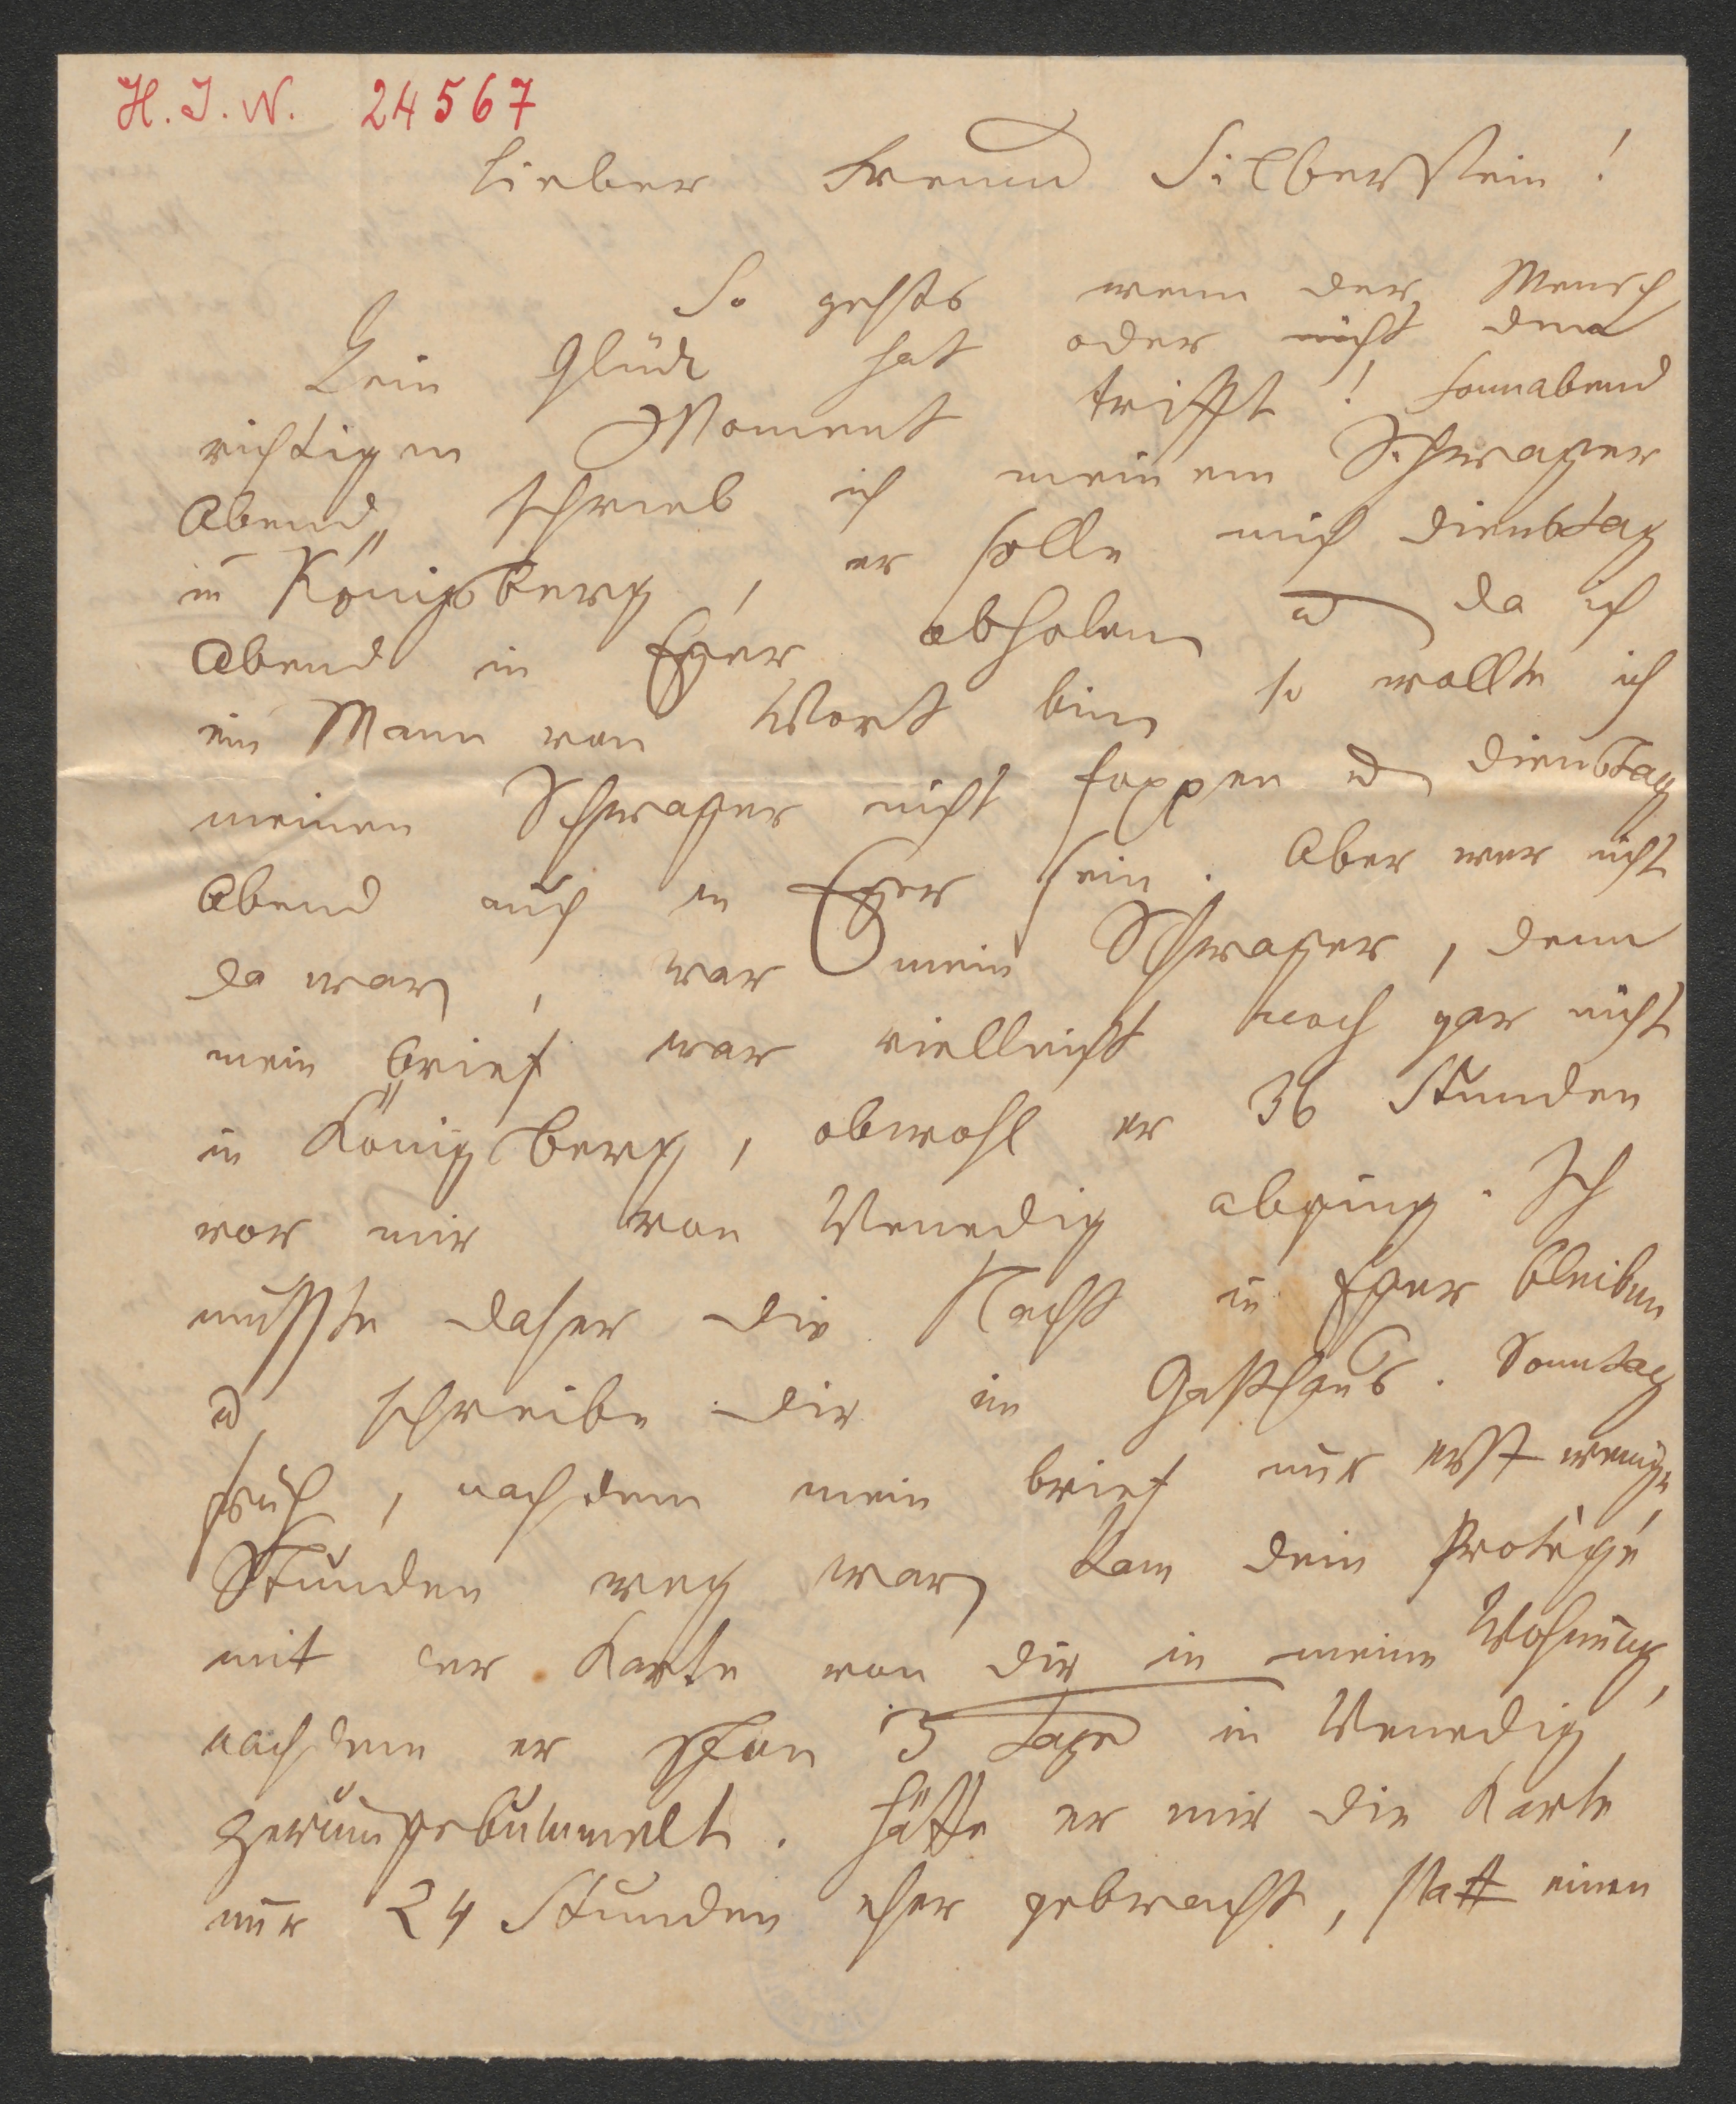 H. I. N. 24567
Lieber Freund Silberstein!
So gehts wenn der Mensch
kein Glück hat oder nicht den
richtigen Moment trifft! Sonnabend
Abend schrieb ich meinem Schwager
in Königsberg, er solle mich Dienstag
Abend in Eger abholen u da ich
ein Mann von Wort bin so wollte ich
meinen Schwager nicht foppen u Dienstag
Abend auch in Eger sein. Aber wer nicht
da war, war mein Schwager, denn
mein Brief war vielleicht noch gar nicht
in Königsberg, obwohl er 36 Stunden
vor mir von Venedig abging. Ich
mußte daher die Nacht in Eger bleiben
u schreibe dir im Gasthaus. Sonntag
früh, nachdem mein Brief nur erst wenige
Stunden weg war, kam dein Protégé
mit der Karte von dir in meine Wohnung,
nachdem er schon 3 Tage in Venedig
herumgebummelt. Hätte er mir die Karte
nur 24 Stunden eher gebracht, statt einen